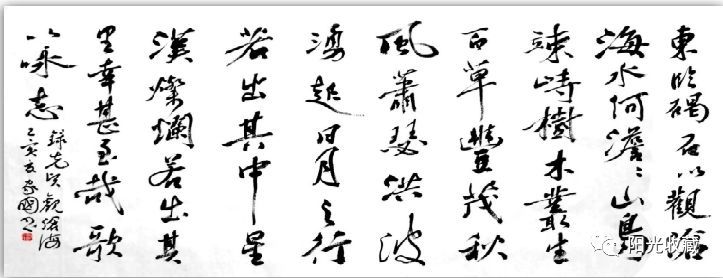 東臨碣石以觀滄
海水何澹〻山島
竦峙樹木叢生
百草豐茂秋
風蕭瑟洪波
湧起日月之行
若出其中星
漢燦爛若出其
里幸甚至哉歌
詠志
觀滄海
己亥 家國书
阳光收藏